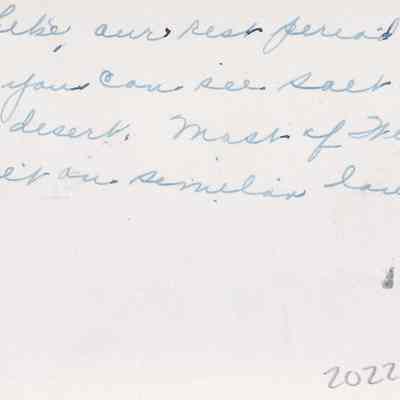 Like, our rest period
you can see salt
desert. Most of the
it on similar
2022